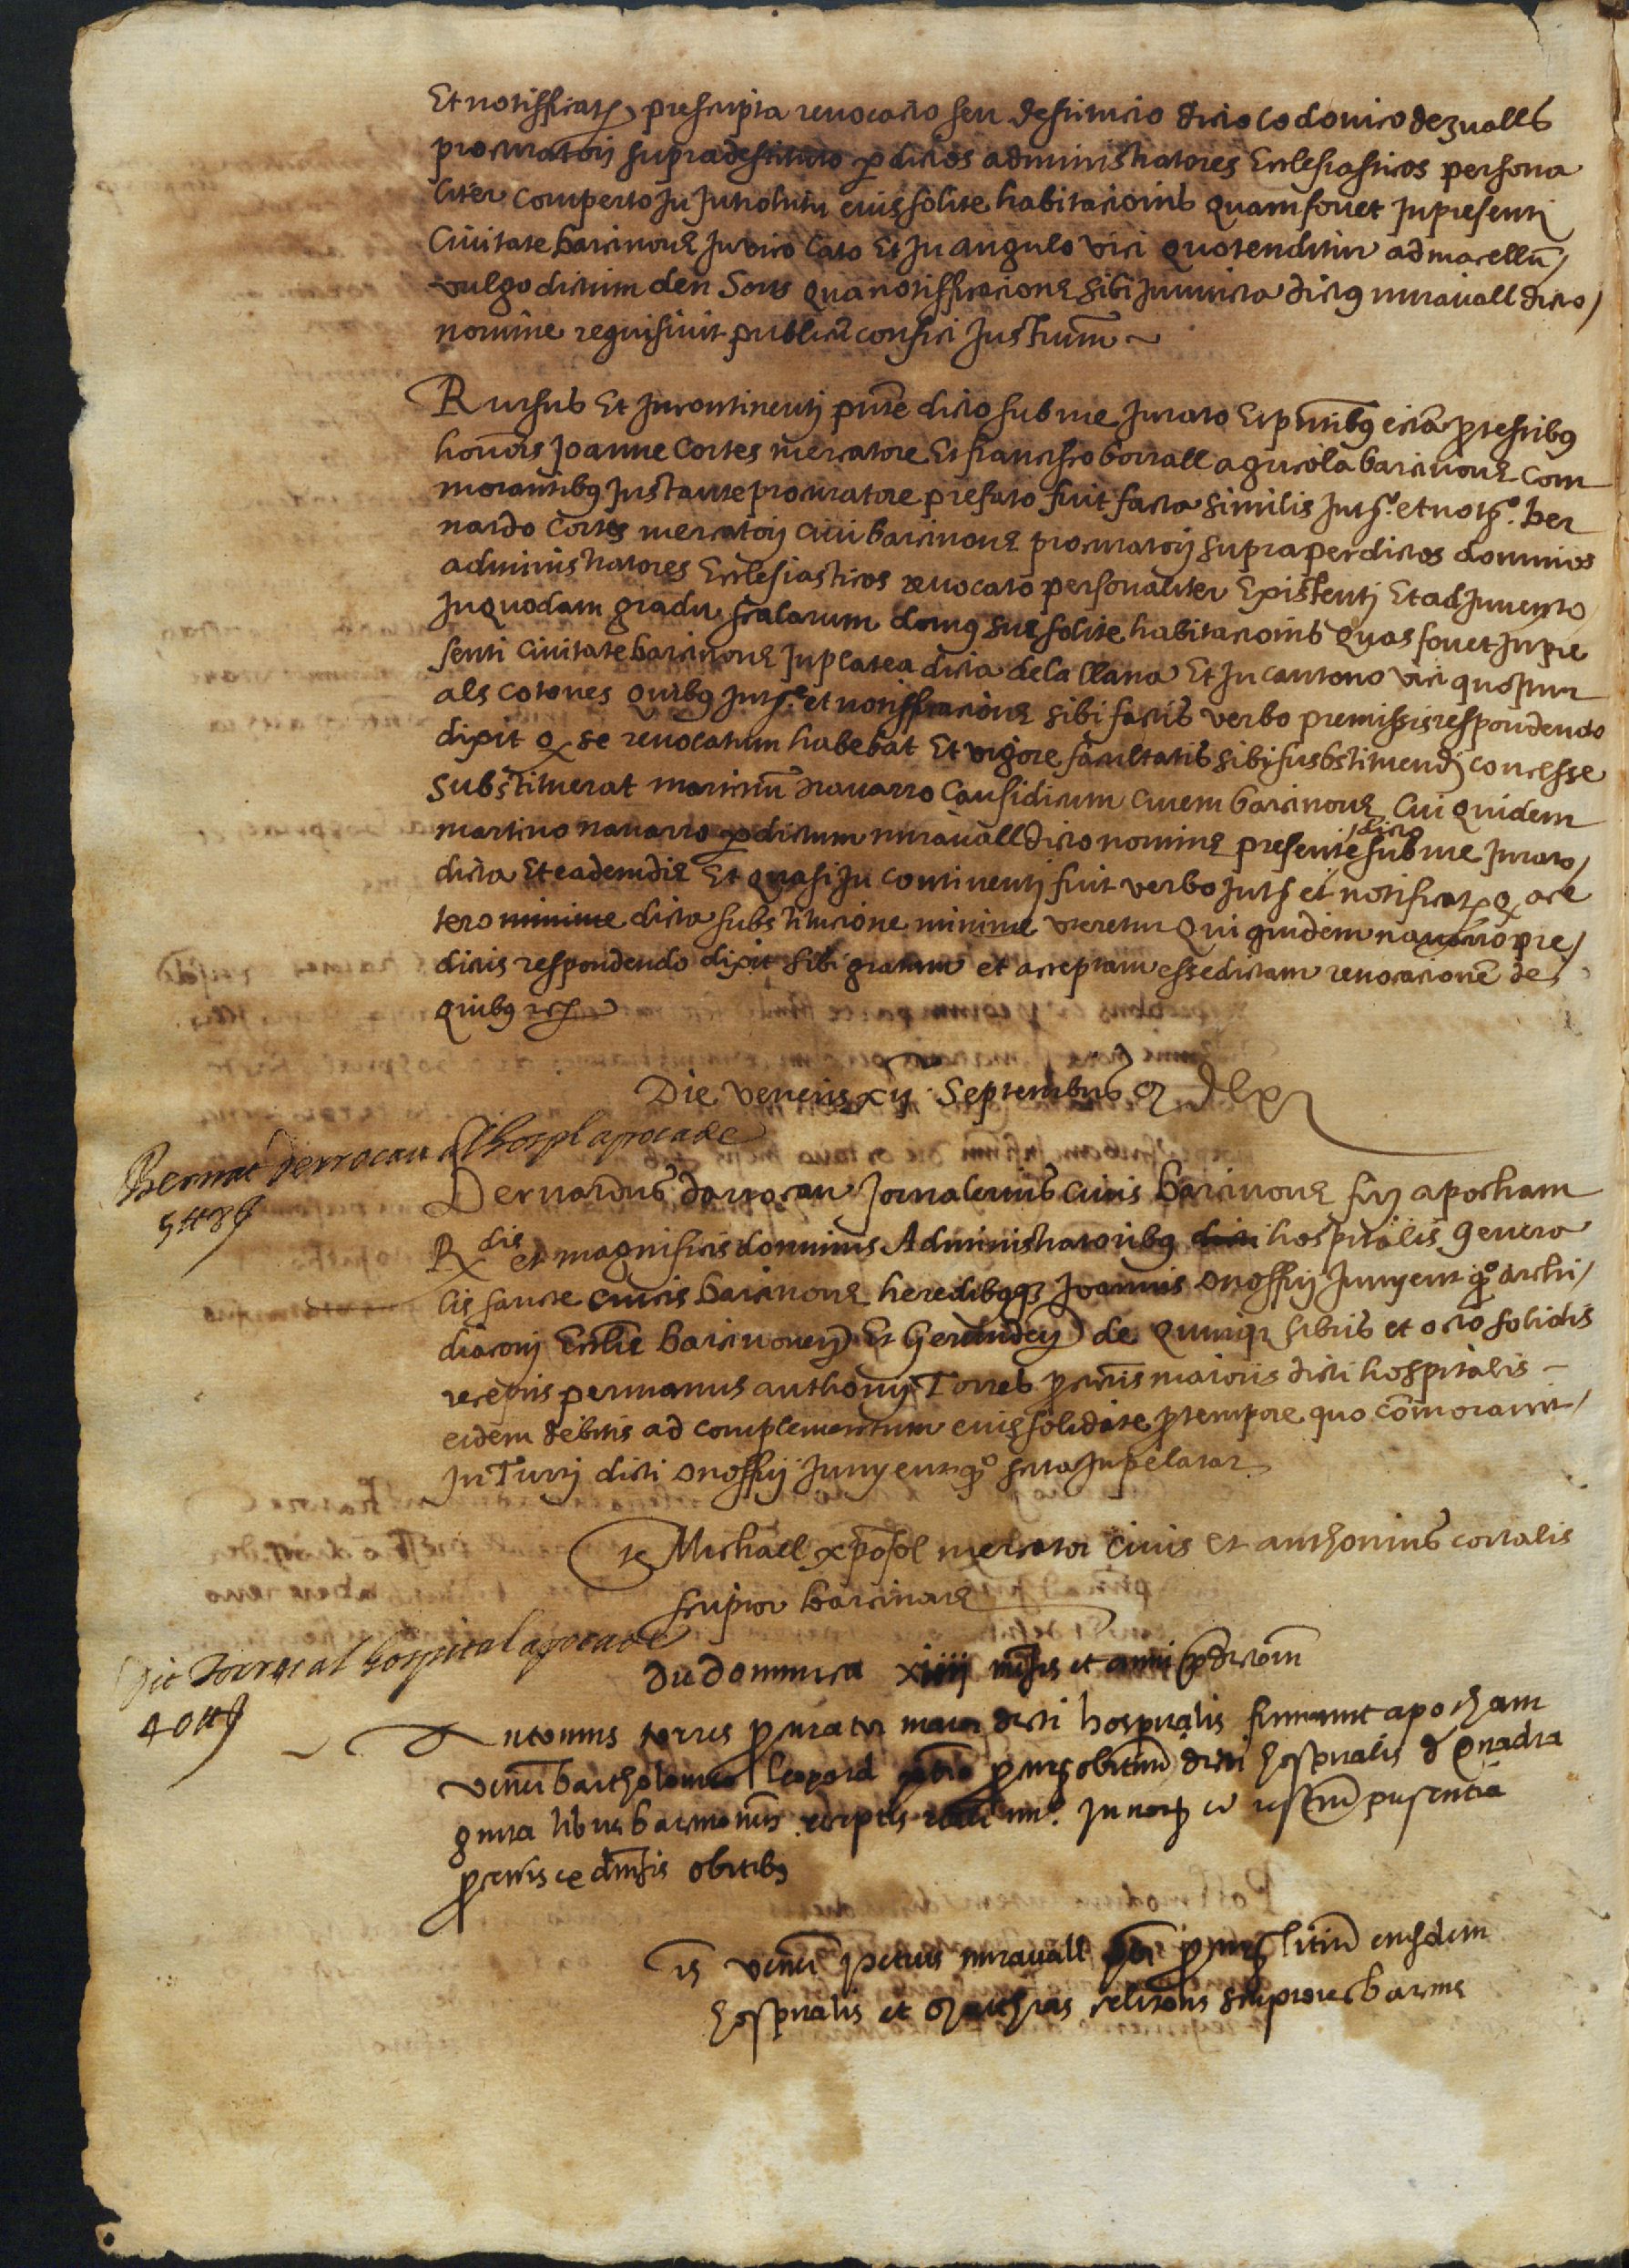 Et notifficata prescripta revocacio seu destitucio dicto Lodovico dezvalls
procuratorj supradestituto p dictos administratores Ecclesiasticos persona
liter comperto In Introhitu eius solite habitacionis quam fovet In presenti
Civitate barcinone In vico lato Et In angulo vici quo tenditur ad macellu
vulgo dictum den Sors qua notifficacione sibi Inuncta dictus miravall dicto
nomine requisivit publicu confici Instrum
Rursus Et Incontinentj pnte dicto sub me Jurato Et pntibus ecia p testibus
honor Joanne Cortes mercatore Et francisco borrall agricola barcinone com
morantibus Instante procuratore prefato fuit facta similis Int.e et not.o ber
nardo Cortes mercatorj civi barcinone procuratorj supra per dictos dominos
administratores Ecclesiasticos revocato personaliter Existentj Et ad Invento
In quodam gradu scalarum domus sue solite habitacionis quas fovet In pre
senti Civitate barcinone In platea dicta de la llana Et In cantono vici quo Itur
als cotones quibus Int.e et notifficacione sibi factis verbo premissis respondendo
dixit q se revocatum habebat Et vigore facultatis sibi susbstituendj concesse
substituerat martinu navarro Causidicum Civem barcinone Cui quidem
martino navarro p dictum miravall dicto nomine presente dicto sub me Jurato
dicta Et eadem die Et quasi In continentj fuit verbo Int et notificat q ace
tero minime dicta substitucione minime uteretur Qui quidem navarro pre
dictis respondendo dixit sibi gratam et acceptam esse dictam revocacione de
quibus etc
Die veneris xij Septembris M D lx
Bernat derrocau al hospl apoca de
5 ₶ 8 s
Bernardus darrocau Jornalerius Civis barcinone fir apocham
R dis et magnificis dominis Administratoribus dicti hospitalis genera
lis sancte crucis barcinone heredibusq Joannis Onoffrij Junyent q archi
diaconj Ecclie barcinonen Et Gerunden de quinque libris et octo solidis
receptis per manus anthonij Torres pctoris maioris dicti hospitalis
eidem debitis ad complementum eius solidate p tempore quo comoravit
In Turrj dicti Onoffrij Junyent q scita In pelatar
ts Michael xpofol mercator Civis et anthonius cortalis
scriptor barcinone
Dit Torres al hospital apoca de
40 ₶ s
die dominica xiiij mensis et anni pdictorum
Antonius torres pcurator maior dicti hospitalis firmavit apocham
veneli bartholomeo leopard pbro pcurat obituu dicti hospitalis de quadra
ginta libris barcinonens receptis In not et testiu presencia
hospitalis et
ts veneli petrus miravall pbr pcurat litiu eiusdem
hospitalis et mathias scriptores barcine